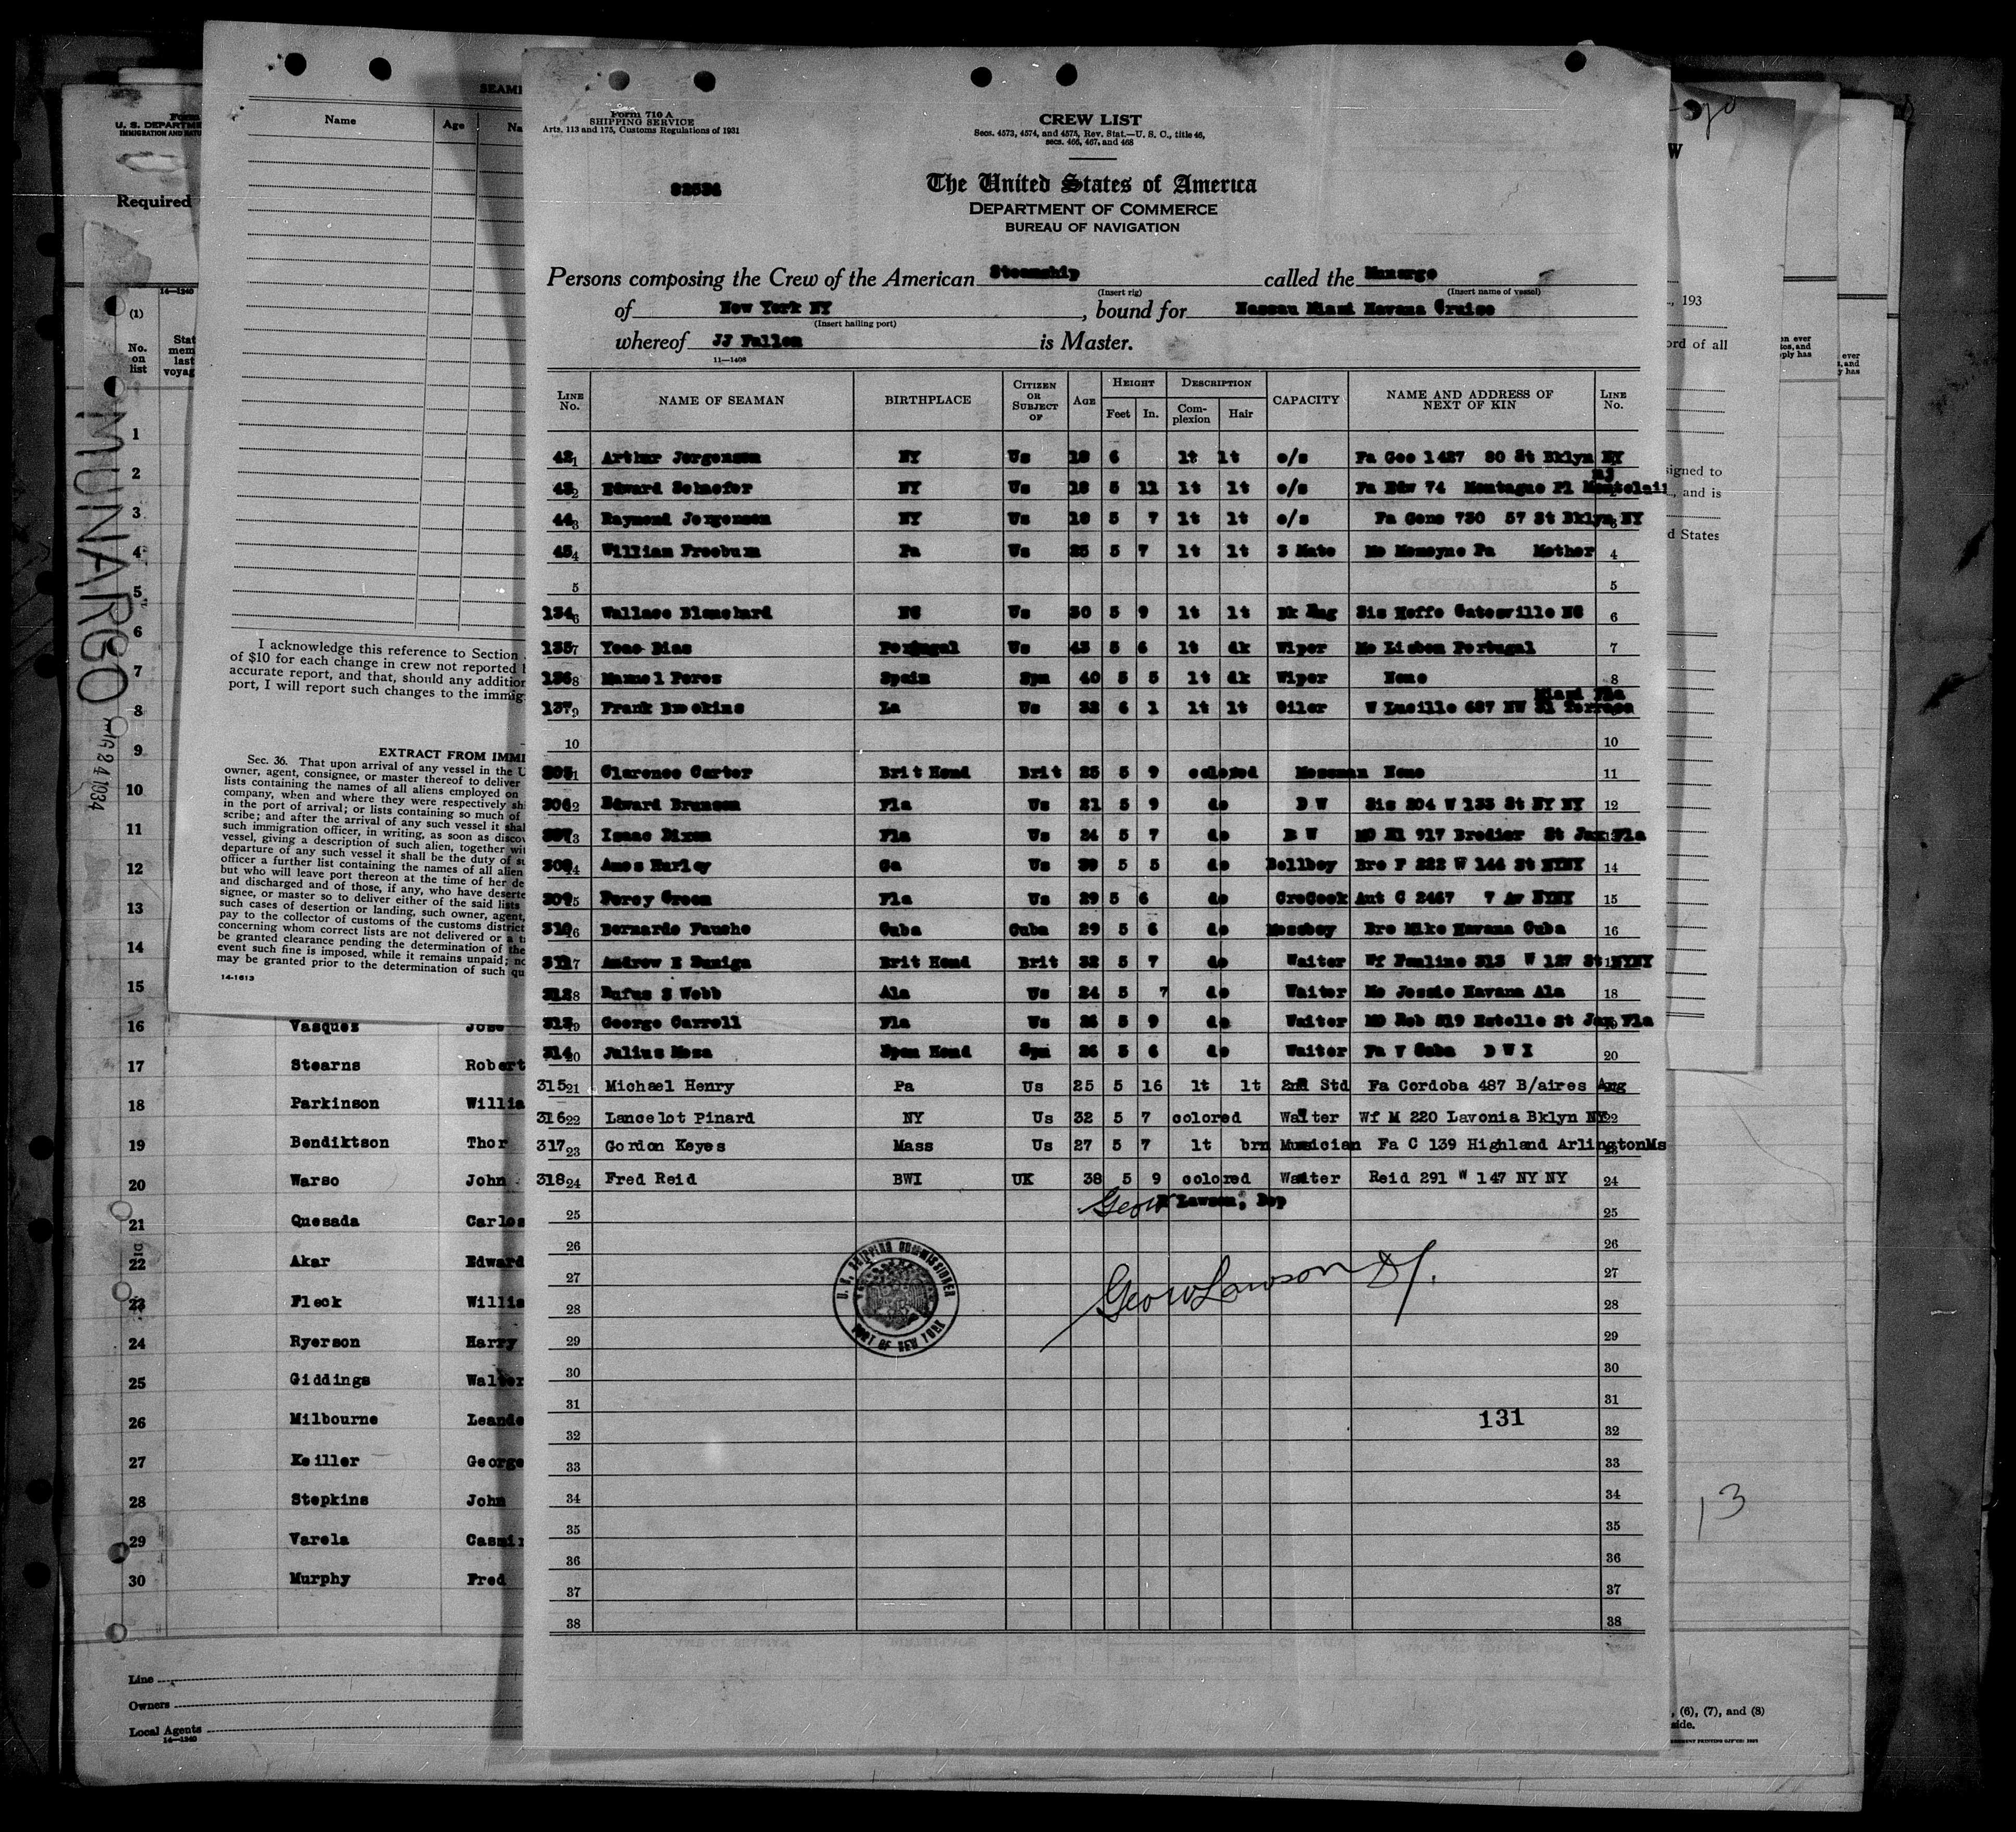 Form 710 A
SHIPPING SERVICE
Arts. 113 and 175, Customs Regulations of 1931
CREW LIST
Secs. 4573, 4574, and 4575, Rev. Stat.—U. S. C., title 46,
secs. 466, 467, and 468
The United States of America
DEPARTMENT OF COMMERCE
BUREAU OF NAVIGATION
Persons composing the Crew of the American Steamship called the Munargo
(Insert rig) (Insert name of vessel)
of New York NY, bound for Nassau Miami Havana Cruise
(Insert hailing port)
whereof JJ Fallon is Master.
11—1408
LINE No. NAME OF SEAMAN BIRTHPLACE CITIZEN OR SUBJECT OF AGE HEIGHT Feet In. DESCRIPTION Complexion Hair CAPACITY NAME AND ADDRESS OF NEXT OF KIN LINE No.
42 1 Arthur Jorgensen NY Us 18 6 lt lt o/s Fa Geo 1427 80 St Bklyn NY
43 2 Edward Schaefer NY Us 18 5 11 lt lt o/s Fa Edw 74 Montague Pl Montclair NJ
44 3 Raymond Jorgensen NY Us 18 5 7 lt lt o/s Fa Gens 730 57 St Bklyn NY
45 4 William Freeburn Pa Us 25 5 7 lt lt 3 Mate Mo Pa Mother 4
5 5
134 6 Wallace Blanchard NC Us 30 5 9 lt lt Sis Gatesville NC 6
135 7 Dias Portugal Us 43 5 6 lt dk Wiper Mo Lisbon Portugal 7
136 8 Manuel Peres Spain Spn 40 5 5 lt dk Wiper None 8
137 9 Frank Brookins La Us 32 6 1 lt lt Oiler W Lucille 687 NW Terrace Miami Fla
10 10
305 11 Clarence Carter Brit Hond Brit 25 5 9 colored Messman None 11
306 12 Edward Brunson Fla Us 21 5 9 do D W Sis 204 W 133 St NY NY 12
307 13 Isaac Dixon Fla Us 24 5 7 do 917 St Jax Fla
308 14 Amos Harley Ga Us 39 5 5 do Bellboy Bro F 222 W 144 St NYNY 14
309 15 Percy Green Fla Us 29 5 6 do CreCook Aut C 2467 7 Av NYNY 15
310 16 Bernardo Cuba Cuba 29 5 6 do Messboy Bro Mike Havana Cuba 16
311 17 Andrew E Zuniga Brit Hond Brit 32 5 7 do Waiter Wf Pauline 313 W 127 St NYNY
312 18 Rufus S Webb Ala Us 24 5 7 do Waiter Mo Jessie Havana Ala 18
313 19 George Carroll Fla Us 26 5 9 do Waiter MO Reb 819 Estelle St Jax Fla
314 20 Julius Mesa Span Hond Spn 26 5 6 do Waiter Fa V 20
315 21 Michael Henry Pa Us 25 5 16 lt lt 2nd Std Fa Cordoba 487 B/aires Arg
316 22 Lancelot Pinard NY Us 32 5 7 colored Waiter Wf M 220 Lavonia Bklyn NY 22
317 23 Gordon Keyes Mass Us 27 5 7 lt brn Musician Fa C 139 Highland ArlingtonMs
318 24 Fred Reid BWI UK 38 5 9 colored Waiter Reid 291 W 147 NY NY 24
25 Geo W Lawson, Dep 25
26 26
27 27
Geo W Lawson
28 28
29 29
30 30
31 31
32 32
33 33
34 34
35 35
36 36
37 37
38 38
U. S. SHIPPING COMMISSIONER
PORT OF NEW YORK
131
13
U. S. DEPARTME
Required
14—1240
(1)
No. on list
Stat
mem
last
voyag
MUNARGO
Name Age Na
I acknowledge this reference to Section
of $10 for each change in crew not reported
accurate report, and that, should any addition
port, I will report such changes to the immig
EXTRACT FROM IMMI
Sec. 36. That upon arrival of any vessel in the U
owner, agent, consignee, or master thereof to deliver
lists containing the names of all aliens employed on
company, when and where they were respectively sh
in the port of arrival; or lists containing so much of
scribe; and after the arrival of any such vessel it shal
such immigration officer, in writing, as soon as discov
vessel, giving a description of such alien, together wit
departure of any such vessel it shall be the duty of su
officer a further list containing the names of all alien
but who will leave port thereon at the time of her de
and discharged and of those, if any, who have deserte
signee, or master so to deliver either of the said lists
such cases of desertion or landing, such owner, agent,
pay to the collector of customs of the customs district
concerning whom correct lists are not delivered or a t
be granted clearance pending the determination of the
event such fine is imposed, while it remains unpaid; no
may be granted prior to the determination of such qu
14-1613
1
2
3
4
5
6
7
8
9
10
11
12
13
14
15
16 Vasquez Jose
17 Stearns Robert
18 Parkinson Willia
19 Bendiktson Thor
20 Warso John
21 Quesada Carlos
22 Akar Edward
23 Fleck Willia
24 Ryerson Harry
25 Giddings Walter
26 Milbourne Leande
27 Keiller George
28 Stepkins John
29 Varela Casmir
30 Murphy Fred
Line
Owners
Local Agents
14—1240
, 193
ord of all
signed to
, and is
d States
, (6), (7), and (8)
side.